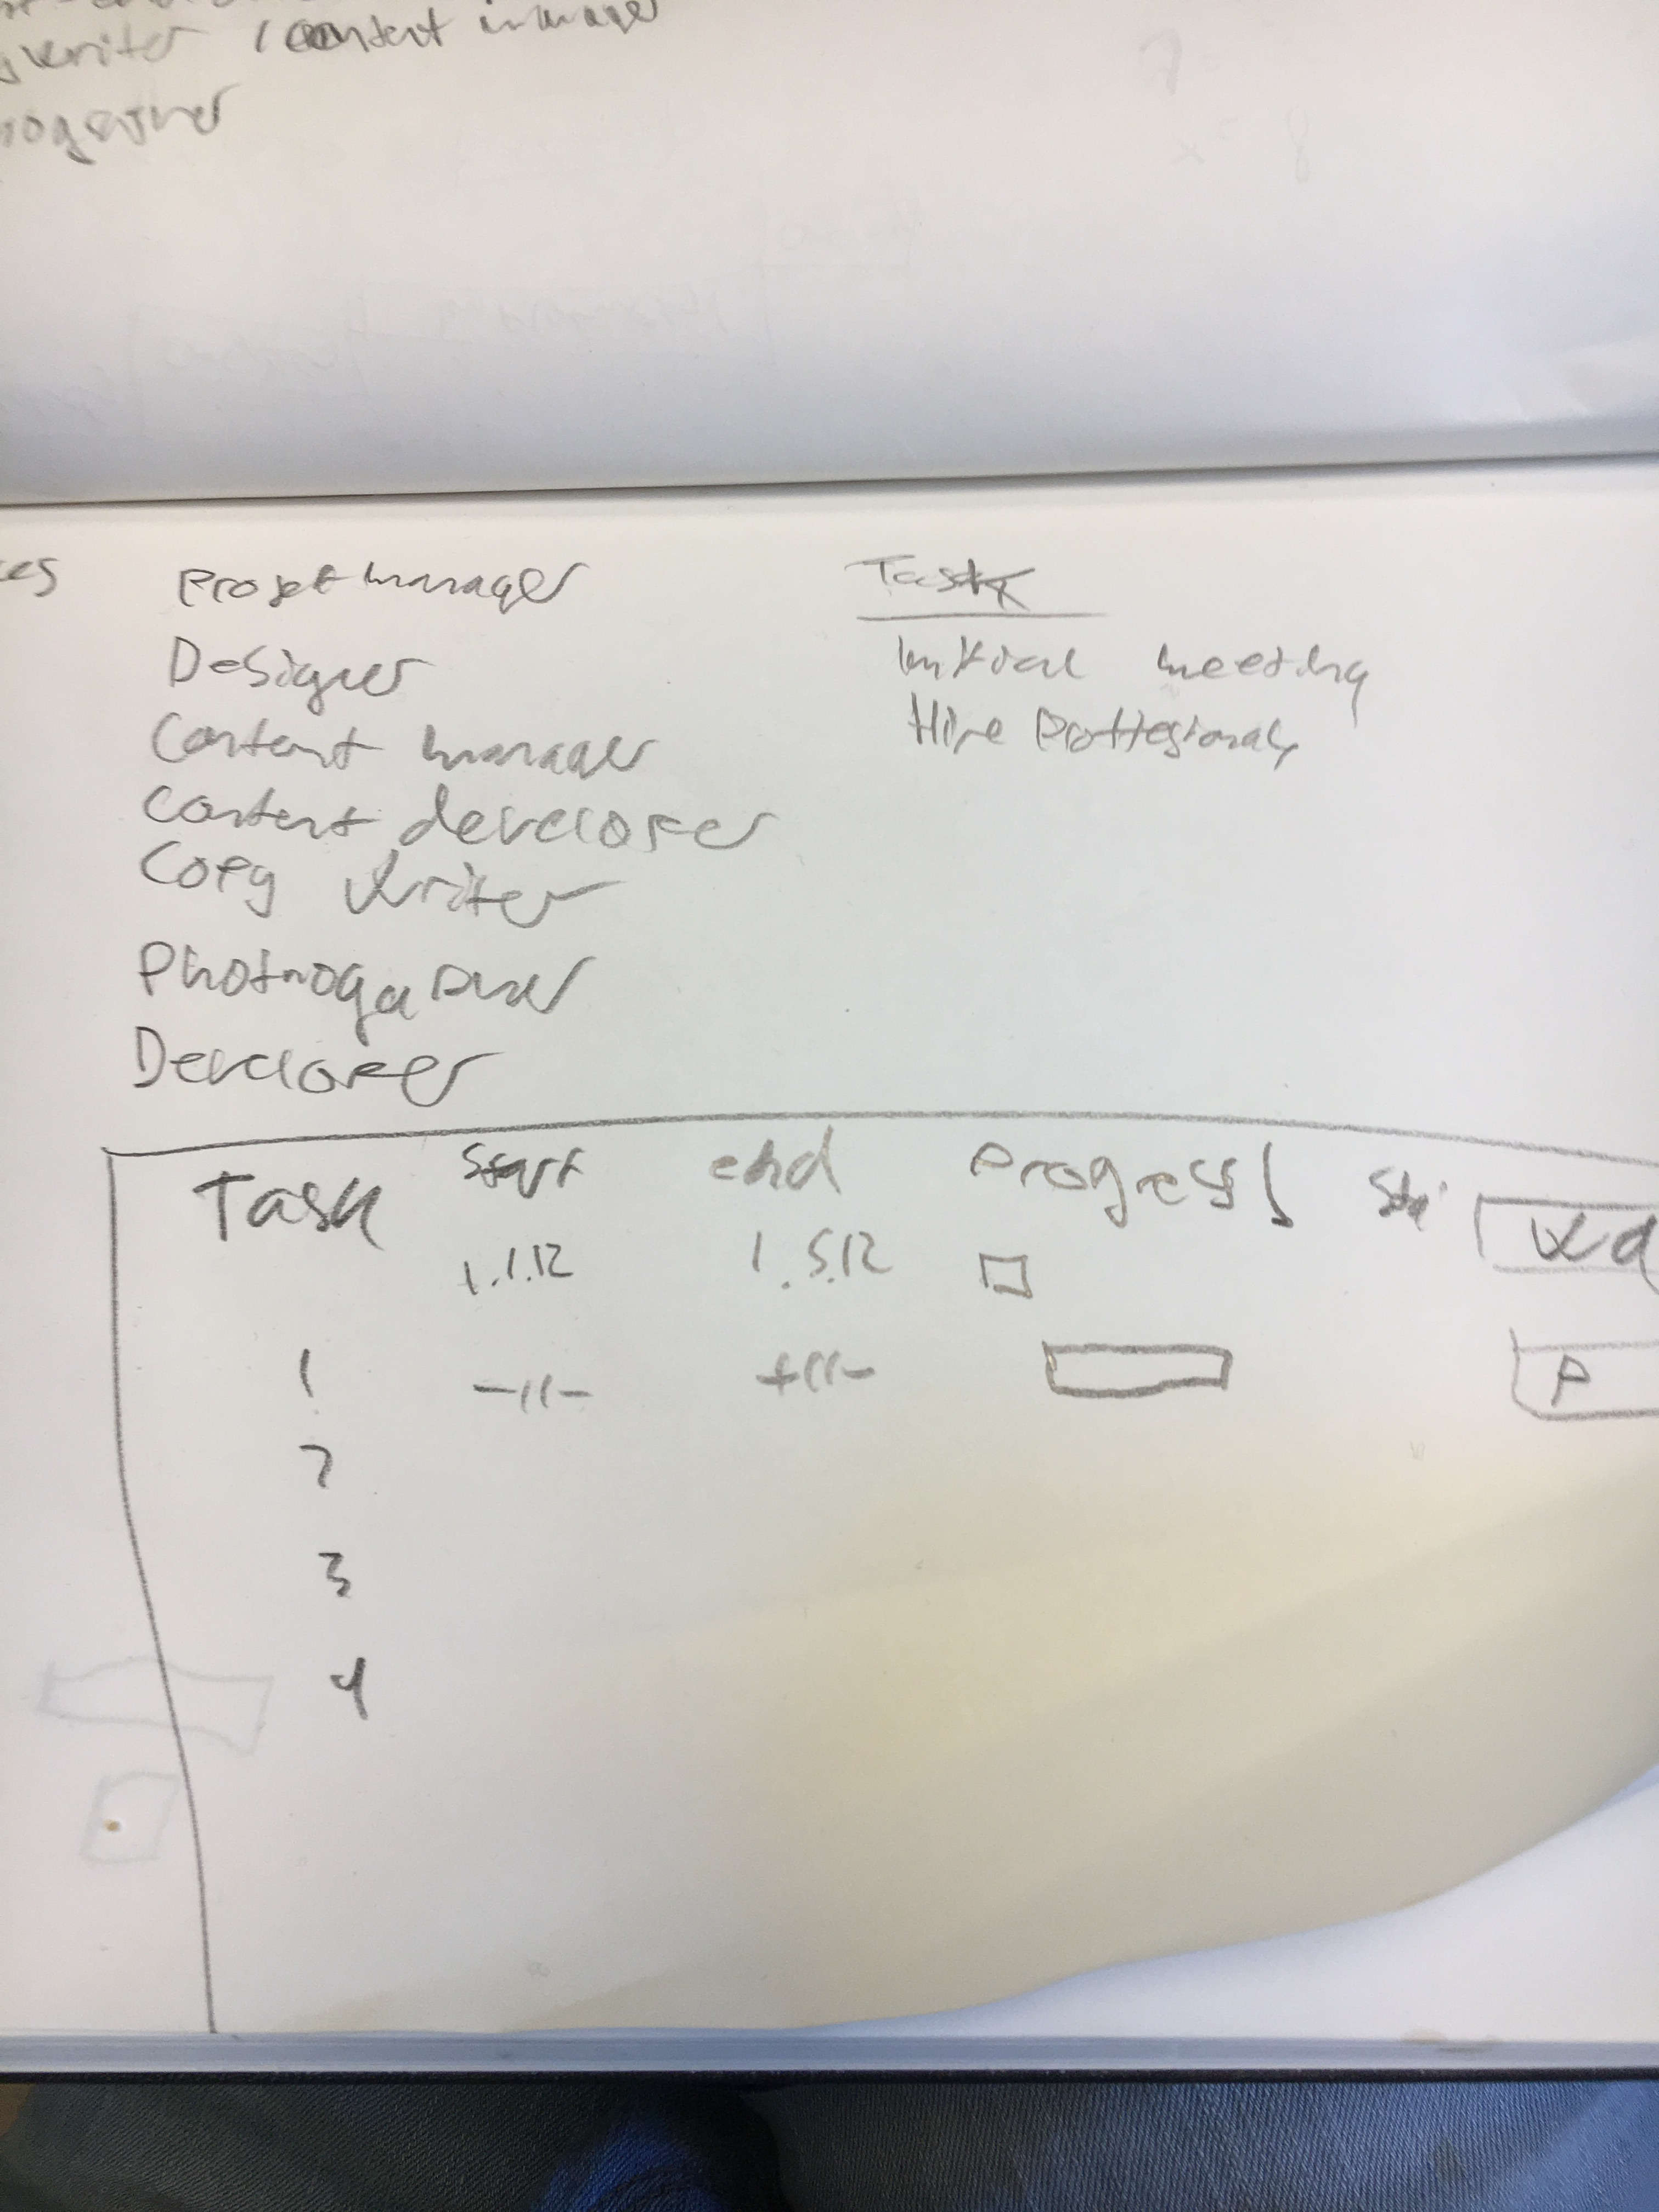 writer / content manager
es
Projet manager
Designer
Content manager
Content developer
Copy writer
Photrogapher
Developer
Task
Initial meeting
Hire Proffesionals
Task start end Progress
1.1.12 1.5.12
1 -11- -11- P
2
3
4